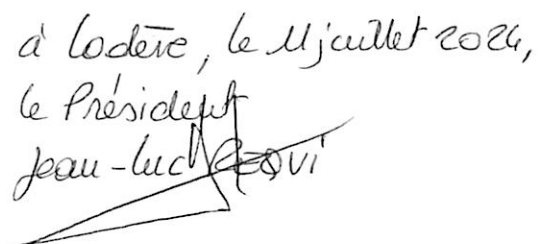 à Lodève, le 11 juillet 2024,
le Président
Jean-Luc REQUI